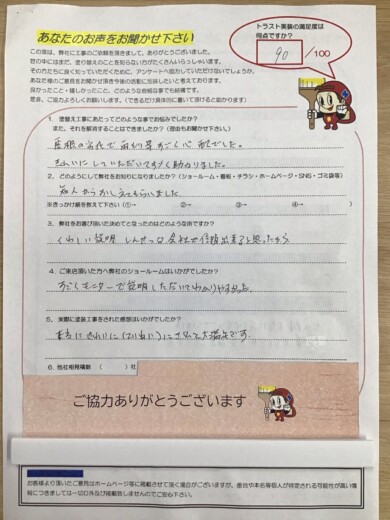 あなたのお声をお聞かせ下さい
トラスト実装の満足度は
何点ですか？
90 /100
この度は、弊社に工事のご依頼を頂きまして、ありがとうございました。
世の中にはまだ、塗り替えのことを知らない方がたくさんいらっしゃいます。
その方たちに良く知っていただくために、アンケートへ協力していただけないでしょうか。
あなた様のご感想を、当社の工事や今後の活動に反映したいと考えております。
良かったこと・嬉しかったこと、どのような些細な事でも結構です。
是非、ご協力よろしくお願いします。（できるだけ具体的に書いて頂けると助かります）
1. 塗替え工事にあたってどのような事でお悩みでしたか？
また、それを解消することはできましたか？（理由もお聞かせ下さい。）
屋根の劣化で雨がすごく心配でした。
きれいにしていただいてすごく助かりました。
2. どのようにして弊社をお知りになりましたか？（ショールーム・看板・チラシ・ホームページ・SNS・ゴミ袋等）
知人からおしえてもらいました
※きっかけ順を教えて下さい（①→ ②→ ③→ ④→ ）
3. 弊社をお選び頂いた決めてとなったのはどのような所ですか？
くわしい説明 しんせつな会社で信頼出来ると思ったから
4. ご来店頂いた方へ弊社のショールームはいかがでしたか？
すごくモニターで説明しただいてわかりやすかった
5. 実際に塗装工事をされた感想はいかがでしたか？
本当にきれいに（ていねい）にされて大満足です。
6. 他社相見積数 （ ）社
ご協力ありがとうございます
お客様より頂いたご意見はホームページ等に掲載させて頂く場合がございますが、面台や本名等個人が特定される可能性が高い情
報につきましては一切口外及び掲載致しませんのでご安心下さい。